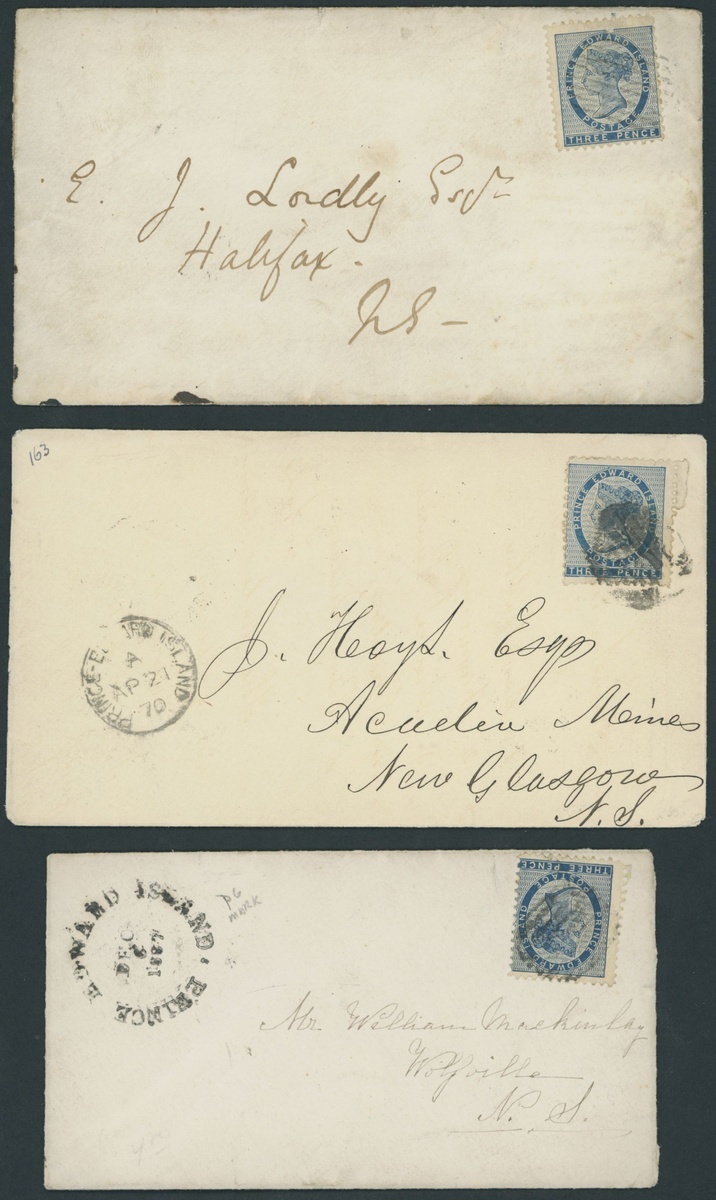 PRINCE EDWARD ISLAND
POSTAGE
THREE PENCE
E. J. Lordly Esqr
Halifax.
NS—
163
PRINCE EDWARD ISLAND
POSTAGE
THREE PENCE
PRINCE-EDWARD ISLAND
4
AP 21
70
J. Hoyt. Esqr
Acadia Mines
New Glasgow
N. S.
THREE PENCE
POSTAGE
PRINCE EDWARD ISLAND
PRINCE EDWARD ISLAND,
DEC
6
1867
PG
MORK
Mr William Mackinlay
Wolfville
N. S.